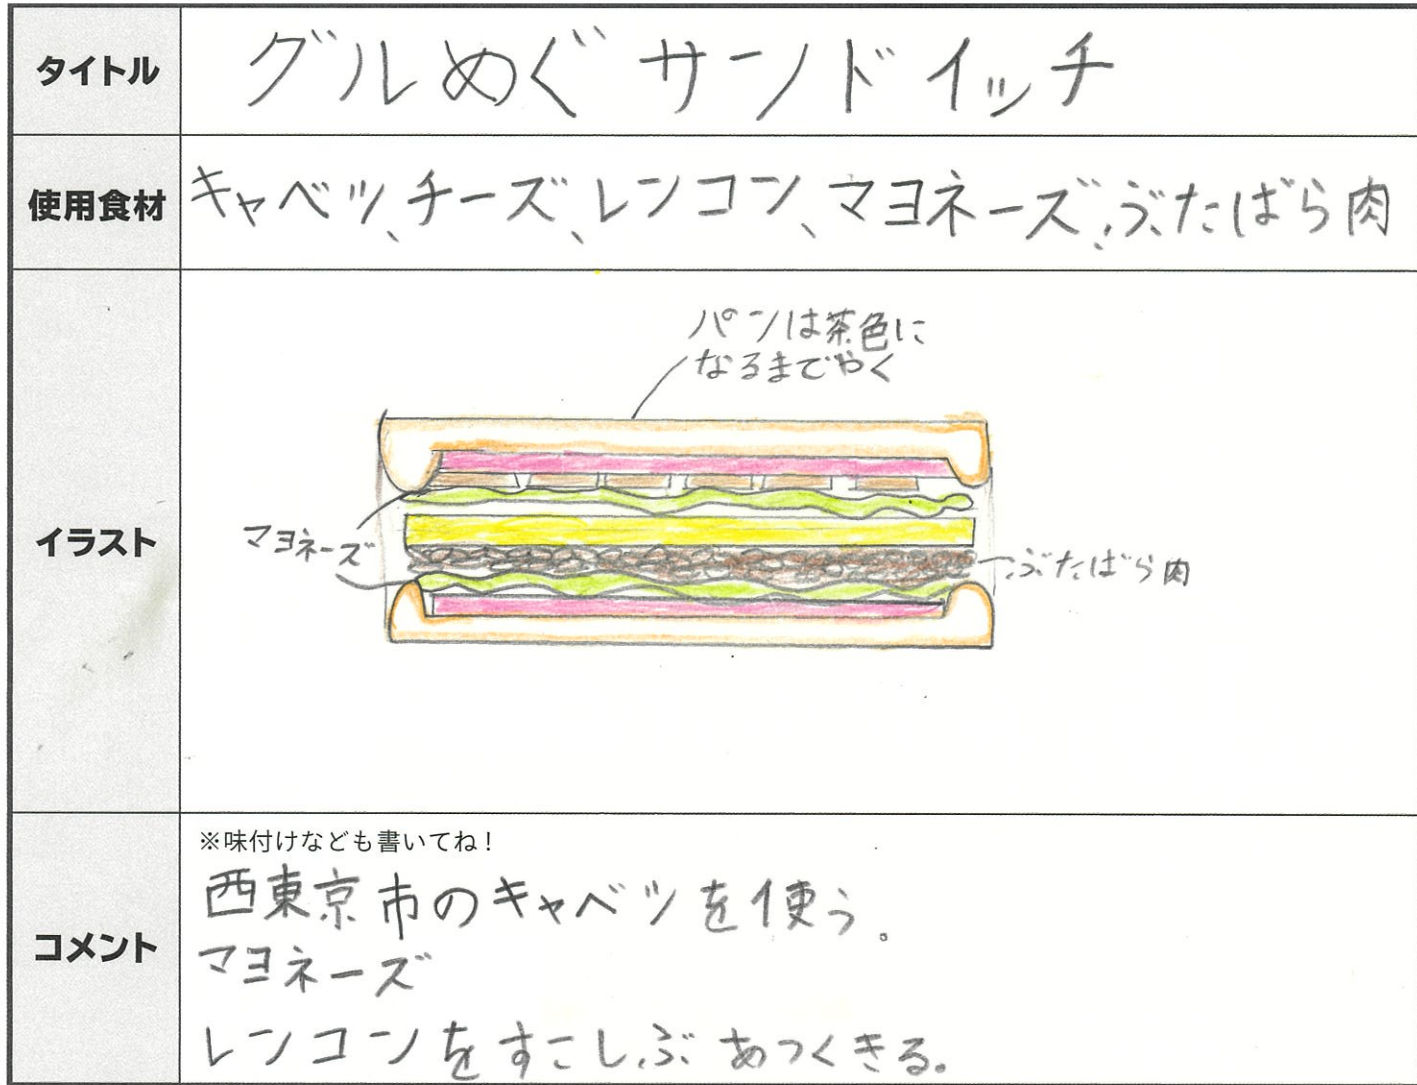 タイトル
グルめぐサンドイッチ
使用食材
キャベツ、チーズ、レンコン、マヨネーズ、ぶたばら肉
イラスト
パンは茶色に
なるまでやく
マヨネーズ
ぶたばら肉
コメント
※味付けなども書いてね！
西東京市のキャベツを使う。
マヨネーズ
レンコンをすこしぶあつくきる。